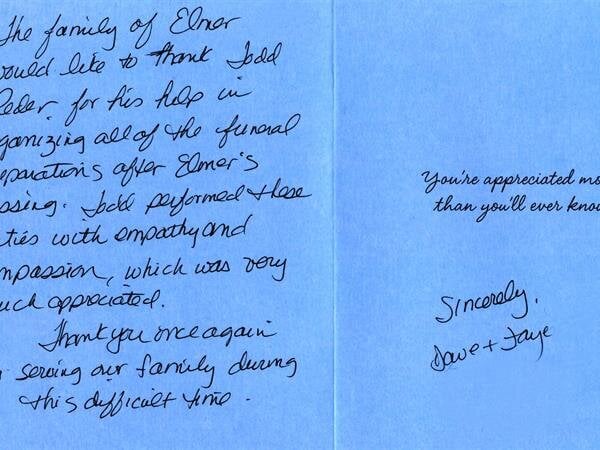 The family of Elmer
would like to thank Todd
eder for his help in
ganizing all of the funeral
eparations after Elmer's
ssing. Todd performed these
ties with empathy and
mpassion, which was very
uch appreciated.
Thank you once again
serving our family during
this difficult time.
You're appreciated mo
than you'll ever know
Sincerely,
Dave + Faye